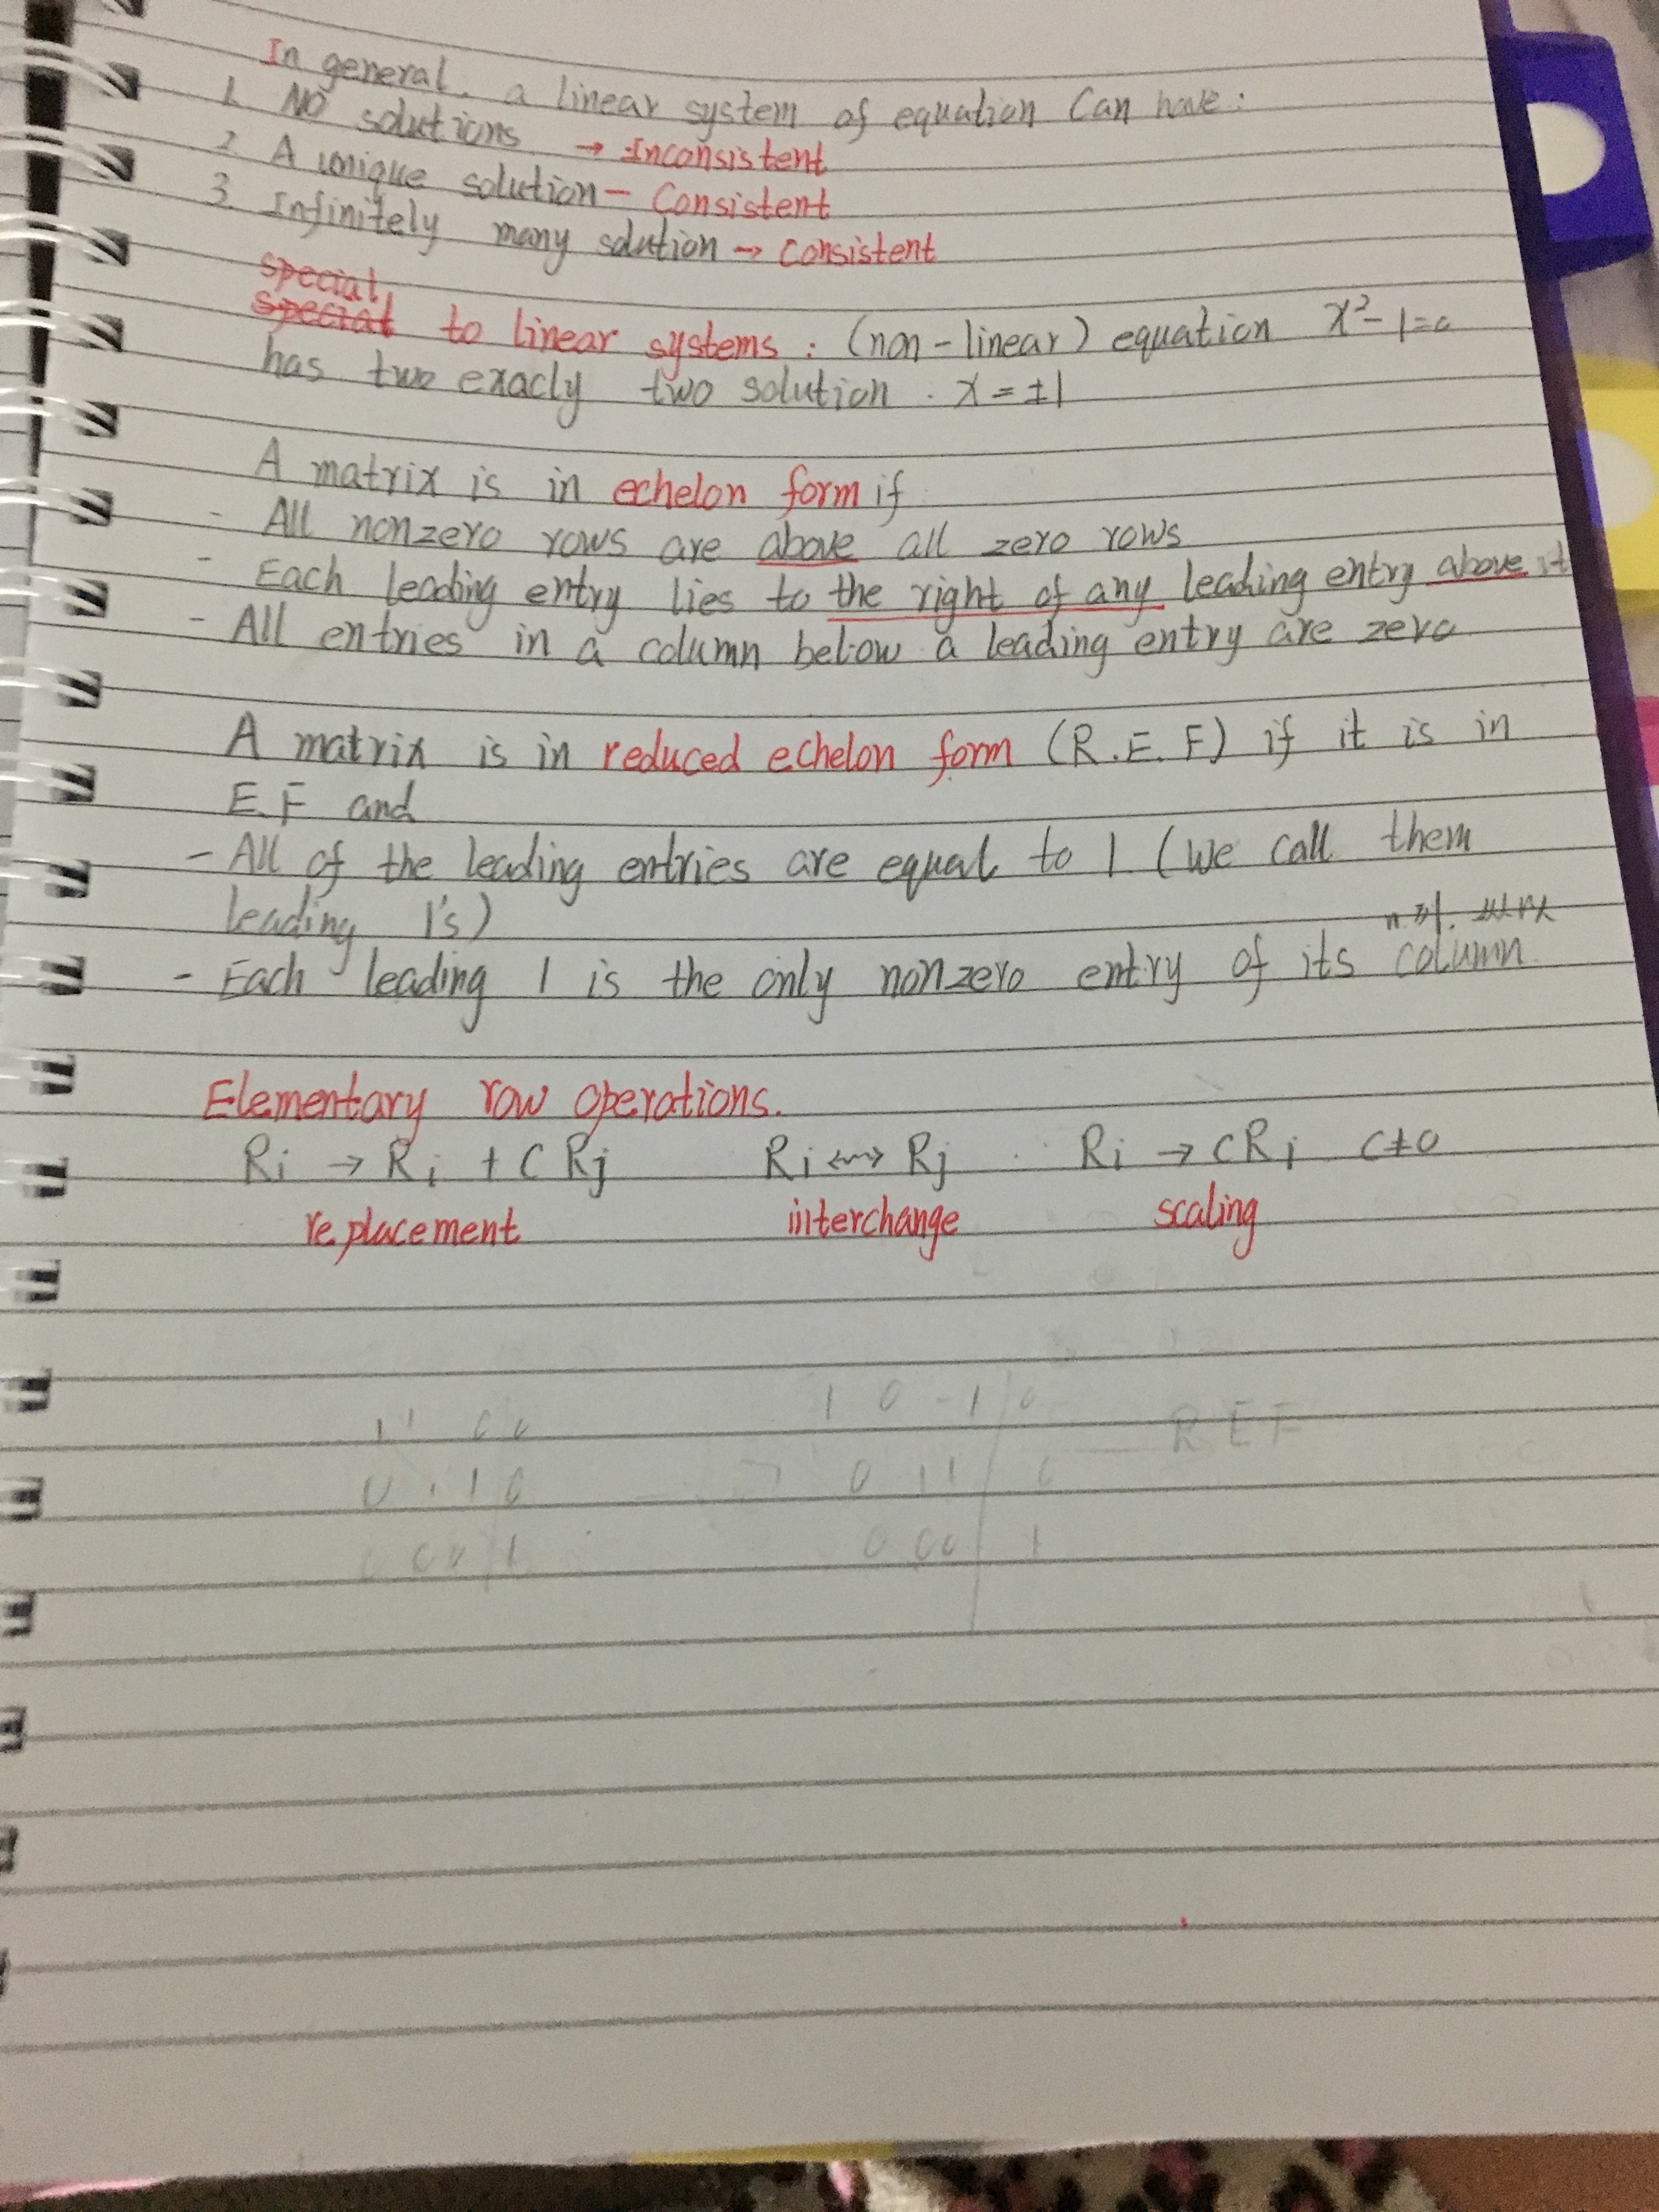 In general, a linear system of equation can have:
1. No solutions → Inconsistent
2. A unique solution – Consistent
3. Infinitely many solution → consistent
special
special to linear systems : (non-linear) equation x²-1=0
has two exacly two solution . x = ±1
A matrix is in echelon form if
- All nonzero rows are above all zero rows
- Each leading entry lies to the right of any leading entry above it
- All entries in a column below a leading entry are zero
A matrix is in reduced echelon form (R.E.F) if it is in
E.F and
- All of the leading entries are equal to 1 (We call them
leading 1's)
- Each leading 1 is the only nonzero entry of its column.
Elementary row operations.
Ri → Ri + C Rj Ri ↔ Rj . Ri → CRi C≠0
replacement interchange scaling
1 0 -1 0
REF
0 1 1 0
0 0 0 1